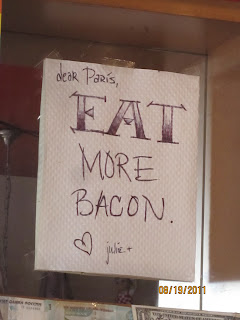 dear Paris,
EAT
MORE
BACON.
♡ julie.+
08/19/2011